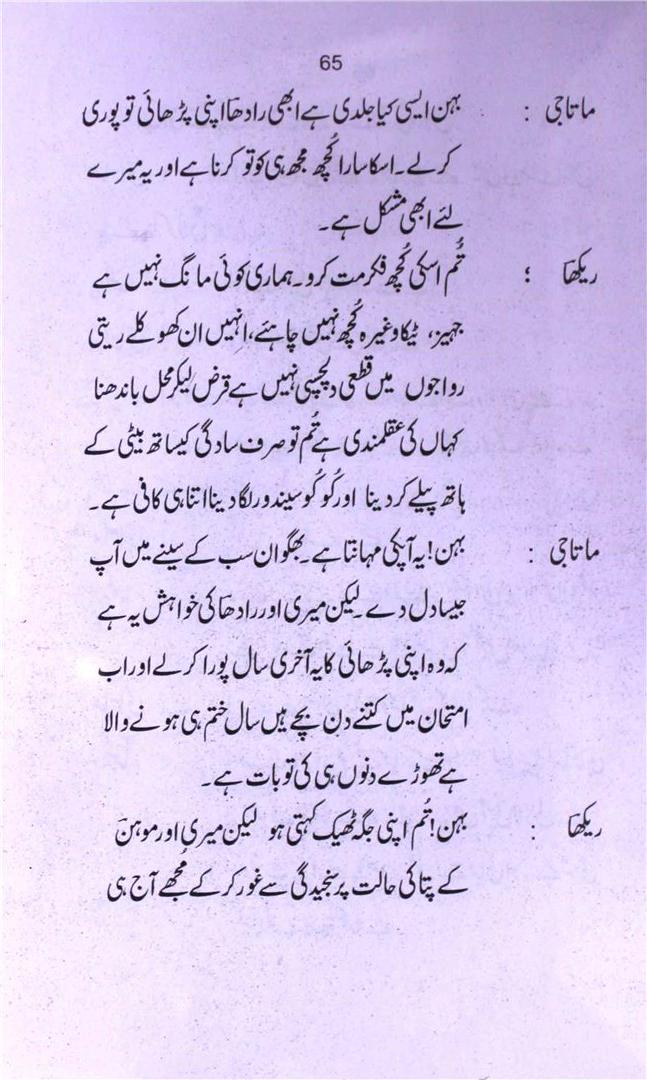 65
ماتاجی : بہن ایسی کیا جلدی ہے ابھی رادھا اپنی پڑھائی تو پوری
کرلے۔ اسکا سارا کُچھ مجھ ہی کو تو کرنا ہے اور یہ میرے
لئے ابھی مشکل ہے۔
ریکھا ؛ تُم اسکی کُچھ فکر مت کرو۔ ہماری کوئی مانگ نہیں ہے
جہیز، ٹیکا وغیرہ کُچھ نہیں چاہئے، اِنہیں ان کھوکلے ریتی
رواجوں میں قطعی دلچسپی نہیں ہے قرض لیکر محل باندھنا
کہاں کی عقلمندی ہے تُم تو صرف سادگی کیساتھ بیٹی کے
ہاتھ پیلے کر دینا اور کُو کُو سیندور لگا دینا اتنا ہی کافی ہے۔
ماتاجی : بہن! یہ آپکی مہانتا ہے۔ بھگوان سب کے سینے میں آپ
جیسا دل دے۔ لیکن میری اور رادھا کی خواہش یہ ہے
کہ وہ اپنی پڑھائی کا یہ آخری سال پورا کرلے اور اب
امتحان میں کتنے دن بچے ہیں سال ختم ہی ہونے والا
ہے تھوڑے دنوں ہی کی تو بات ہے۔
ریکھا : بہن! تُم اپنی جگہ ٹھیک کہتی ہو لیکن میری اور موہن
کے پتا کی حالت پر سنجیدگی سے غور کر کے مُجھے آج ہی